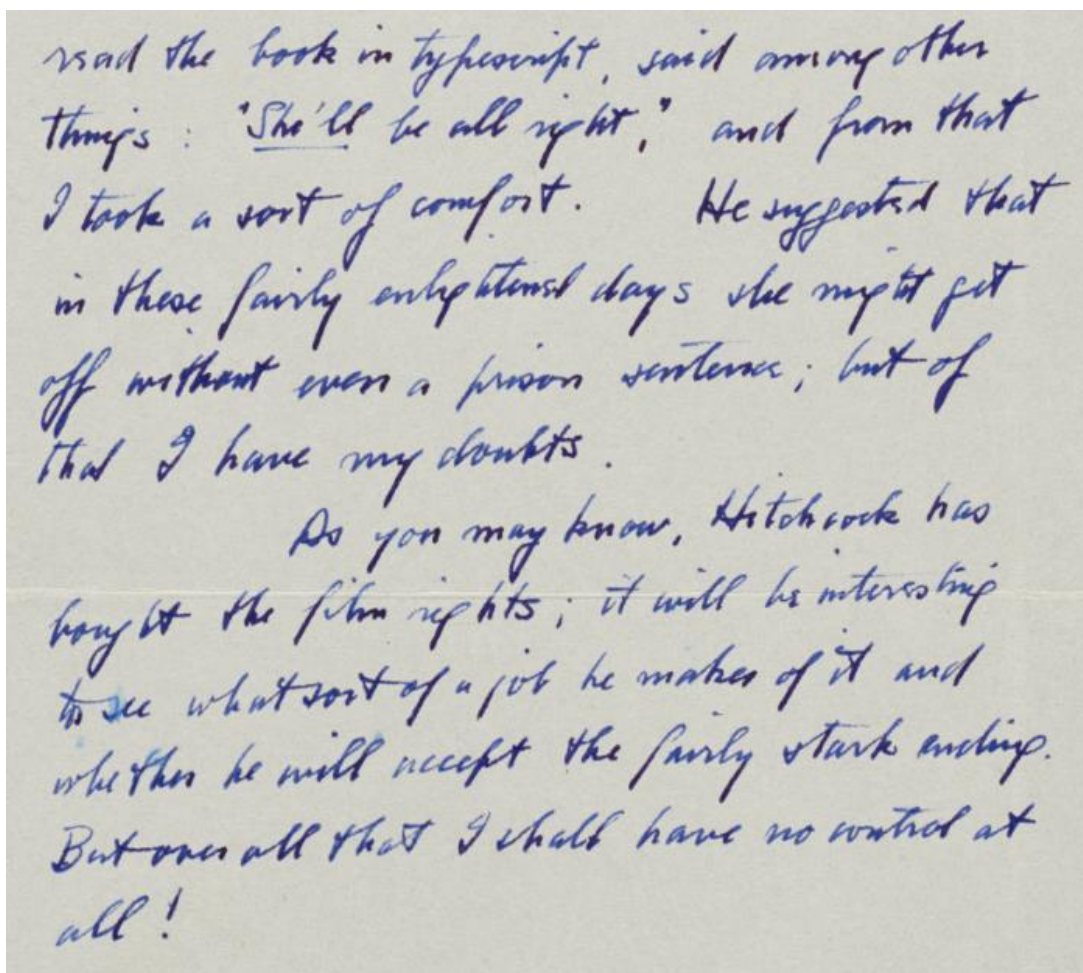 read the book in typescript, said among other
things : "She'll be all right," and from that
I took a sort of comfort. He suggested that
in these fairly enlightened days she might get
off without even a prison sentence; but of
that I have my doubts.
As you may know, Hitchcock has
bought the film rights; it will be interesting
to see what sort of a job he makes of it and
whether he will accept the fairly stark ending.
But over all that I shall have no control at
all!